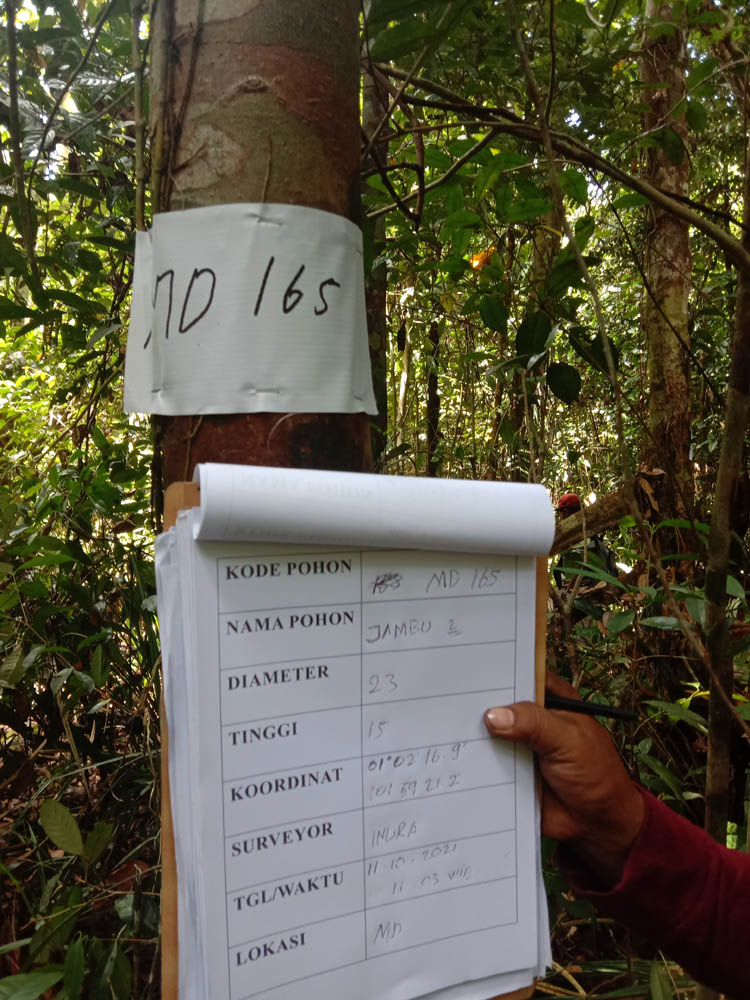 MD 165
KODE POHON MD 165
NAMA POHON JAMBU 2
DIAMETER 23
TINGGI 15
KOORDINAT 01°02 16.9"
101 59 21.2
SURVEYOR INDRA
TGL/WAKTU 11-10-2021
11 03 wib
LOKASI MD